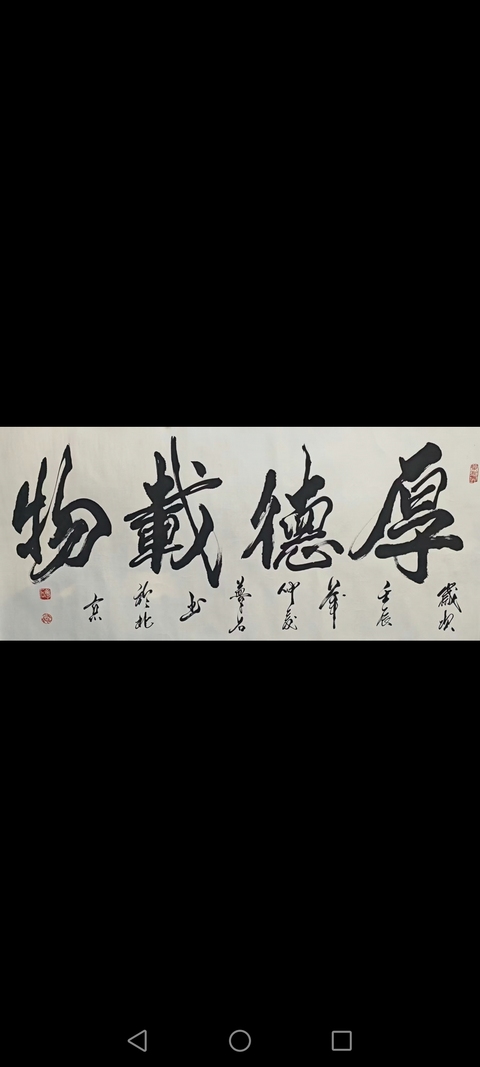 厚德載物
歲次
壬辰
年
仲夏
於北
京